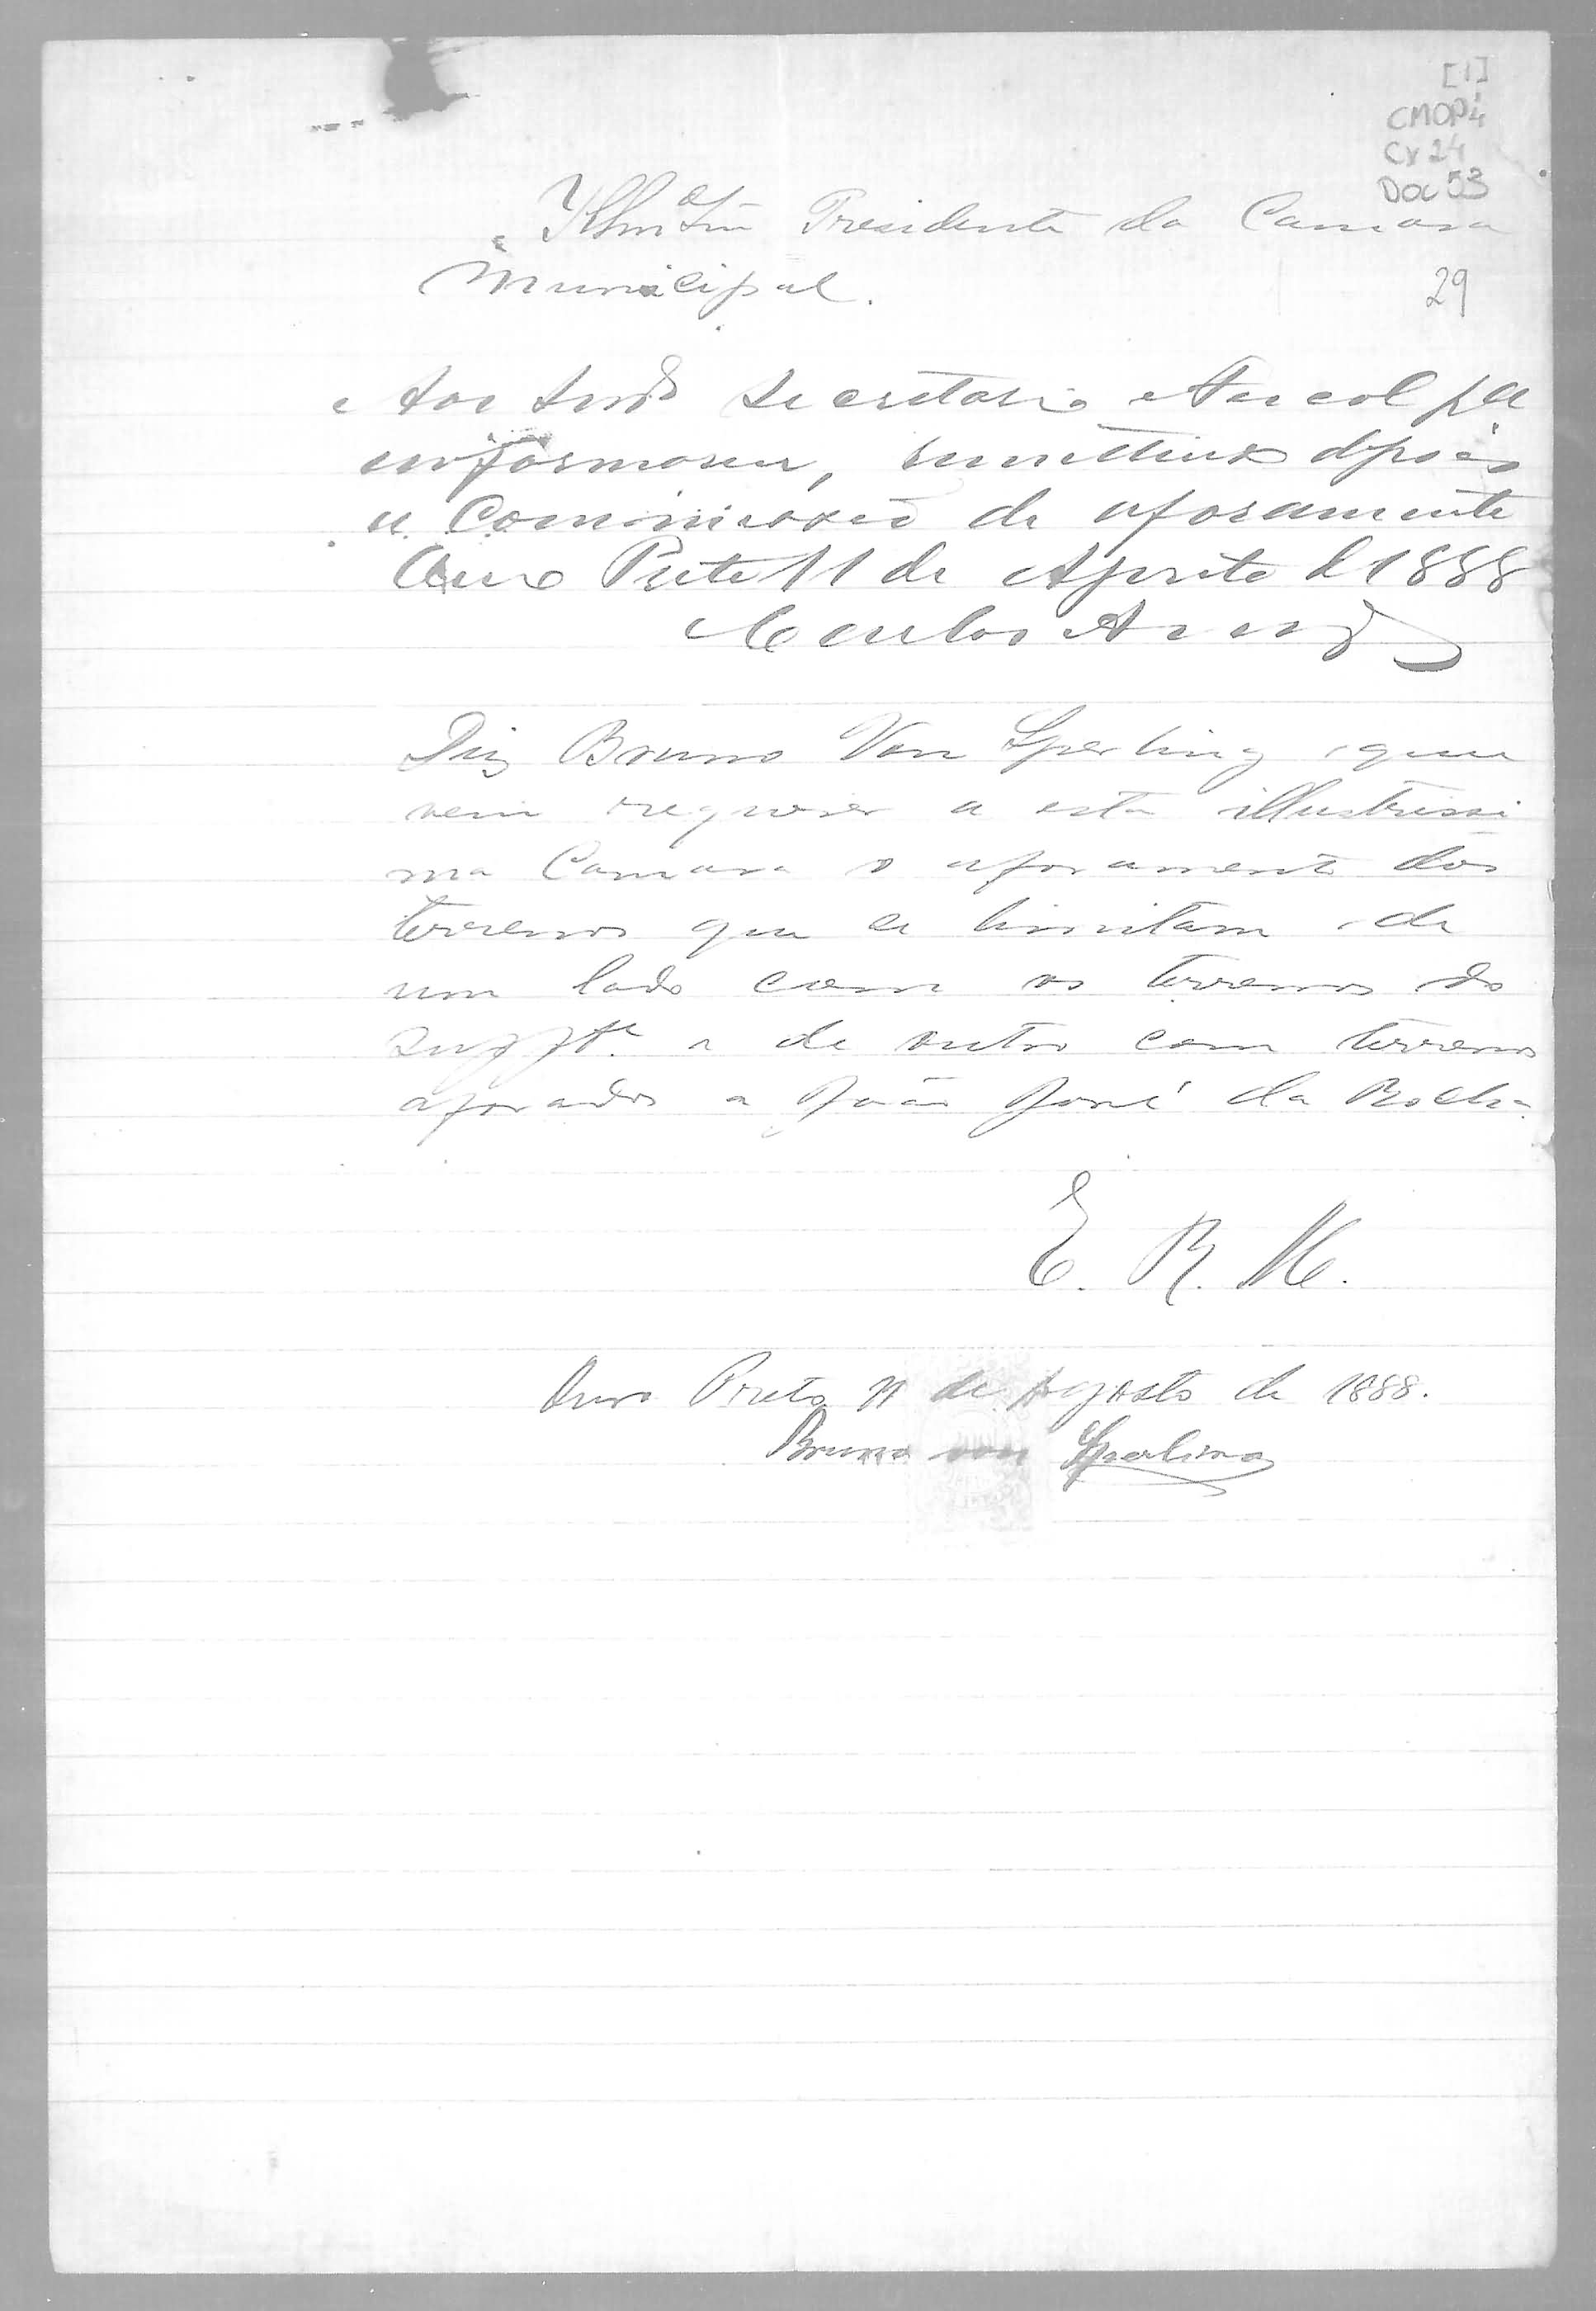 [1]
CMOP4
Cx 24
Doc 53
Illm Snr Presidente da Camara
Municipal.
29
Aos Snrs Secretario e Fiscal pa
informarem, remettidos depois
a Commissão de aforamento
Ouro Preto 11 de Agosto d 1888
Carlos
Diz Bruno Von Sperling, que
vem requerer a esta illustrissi
ma Camara o aforamento dos
terrenos que se limitam de
um lado com os terrenos do
suppte. e de outro com terrenos
aforados a João José da Rocha
E. R. M.
Ouro Preto 11 de Agosto de 1888.
Bruno von Sperling